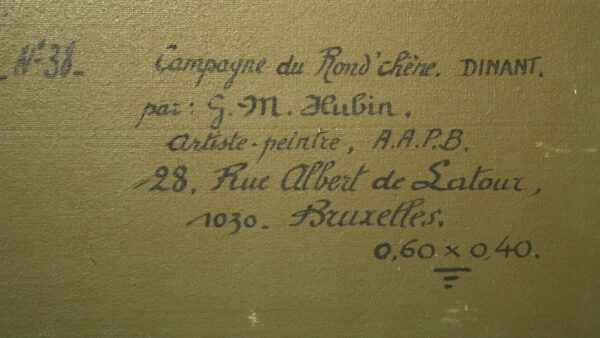 N° 38_
Campagne du Rond'chêne. DINANT.
par: G.-M. Hubin.
Artiste-peintre, A.A.P.B.
28, Rue Albert de Latour,
1030_ Bruxelles.
0,60 x 0,40.